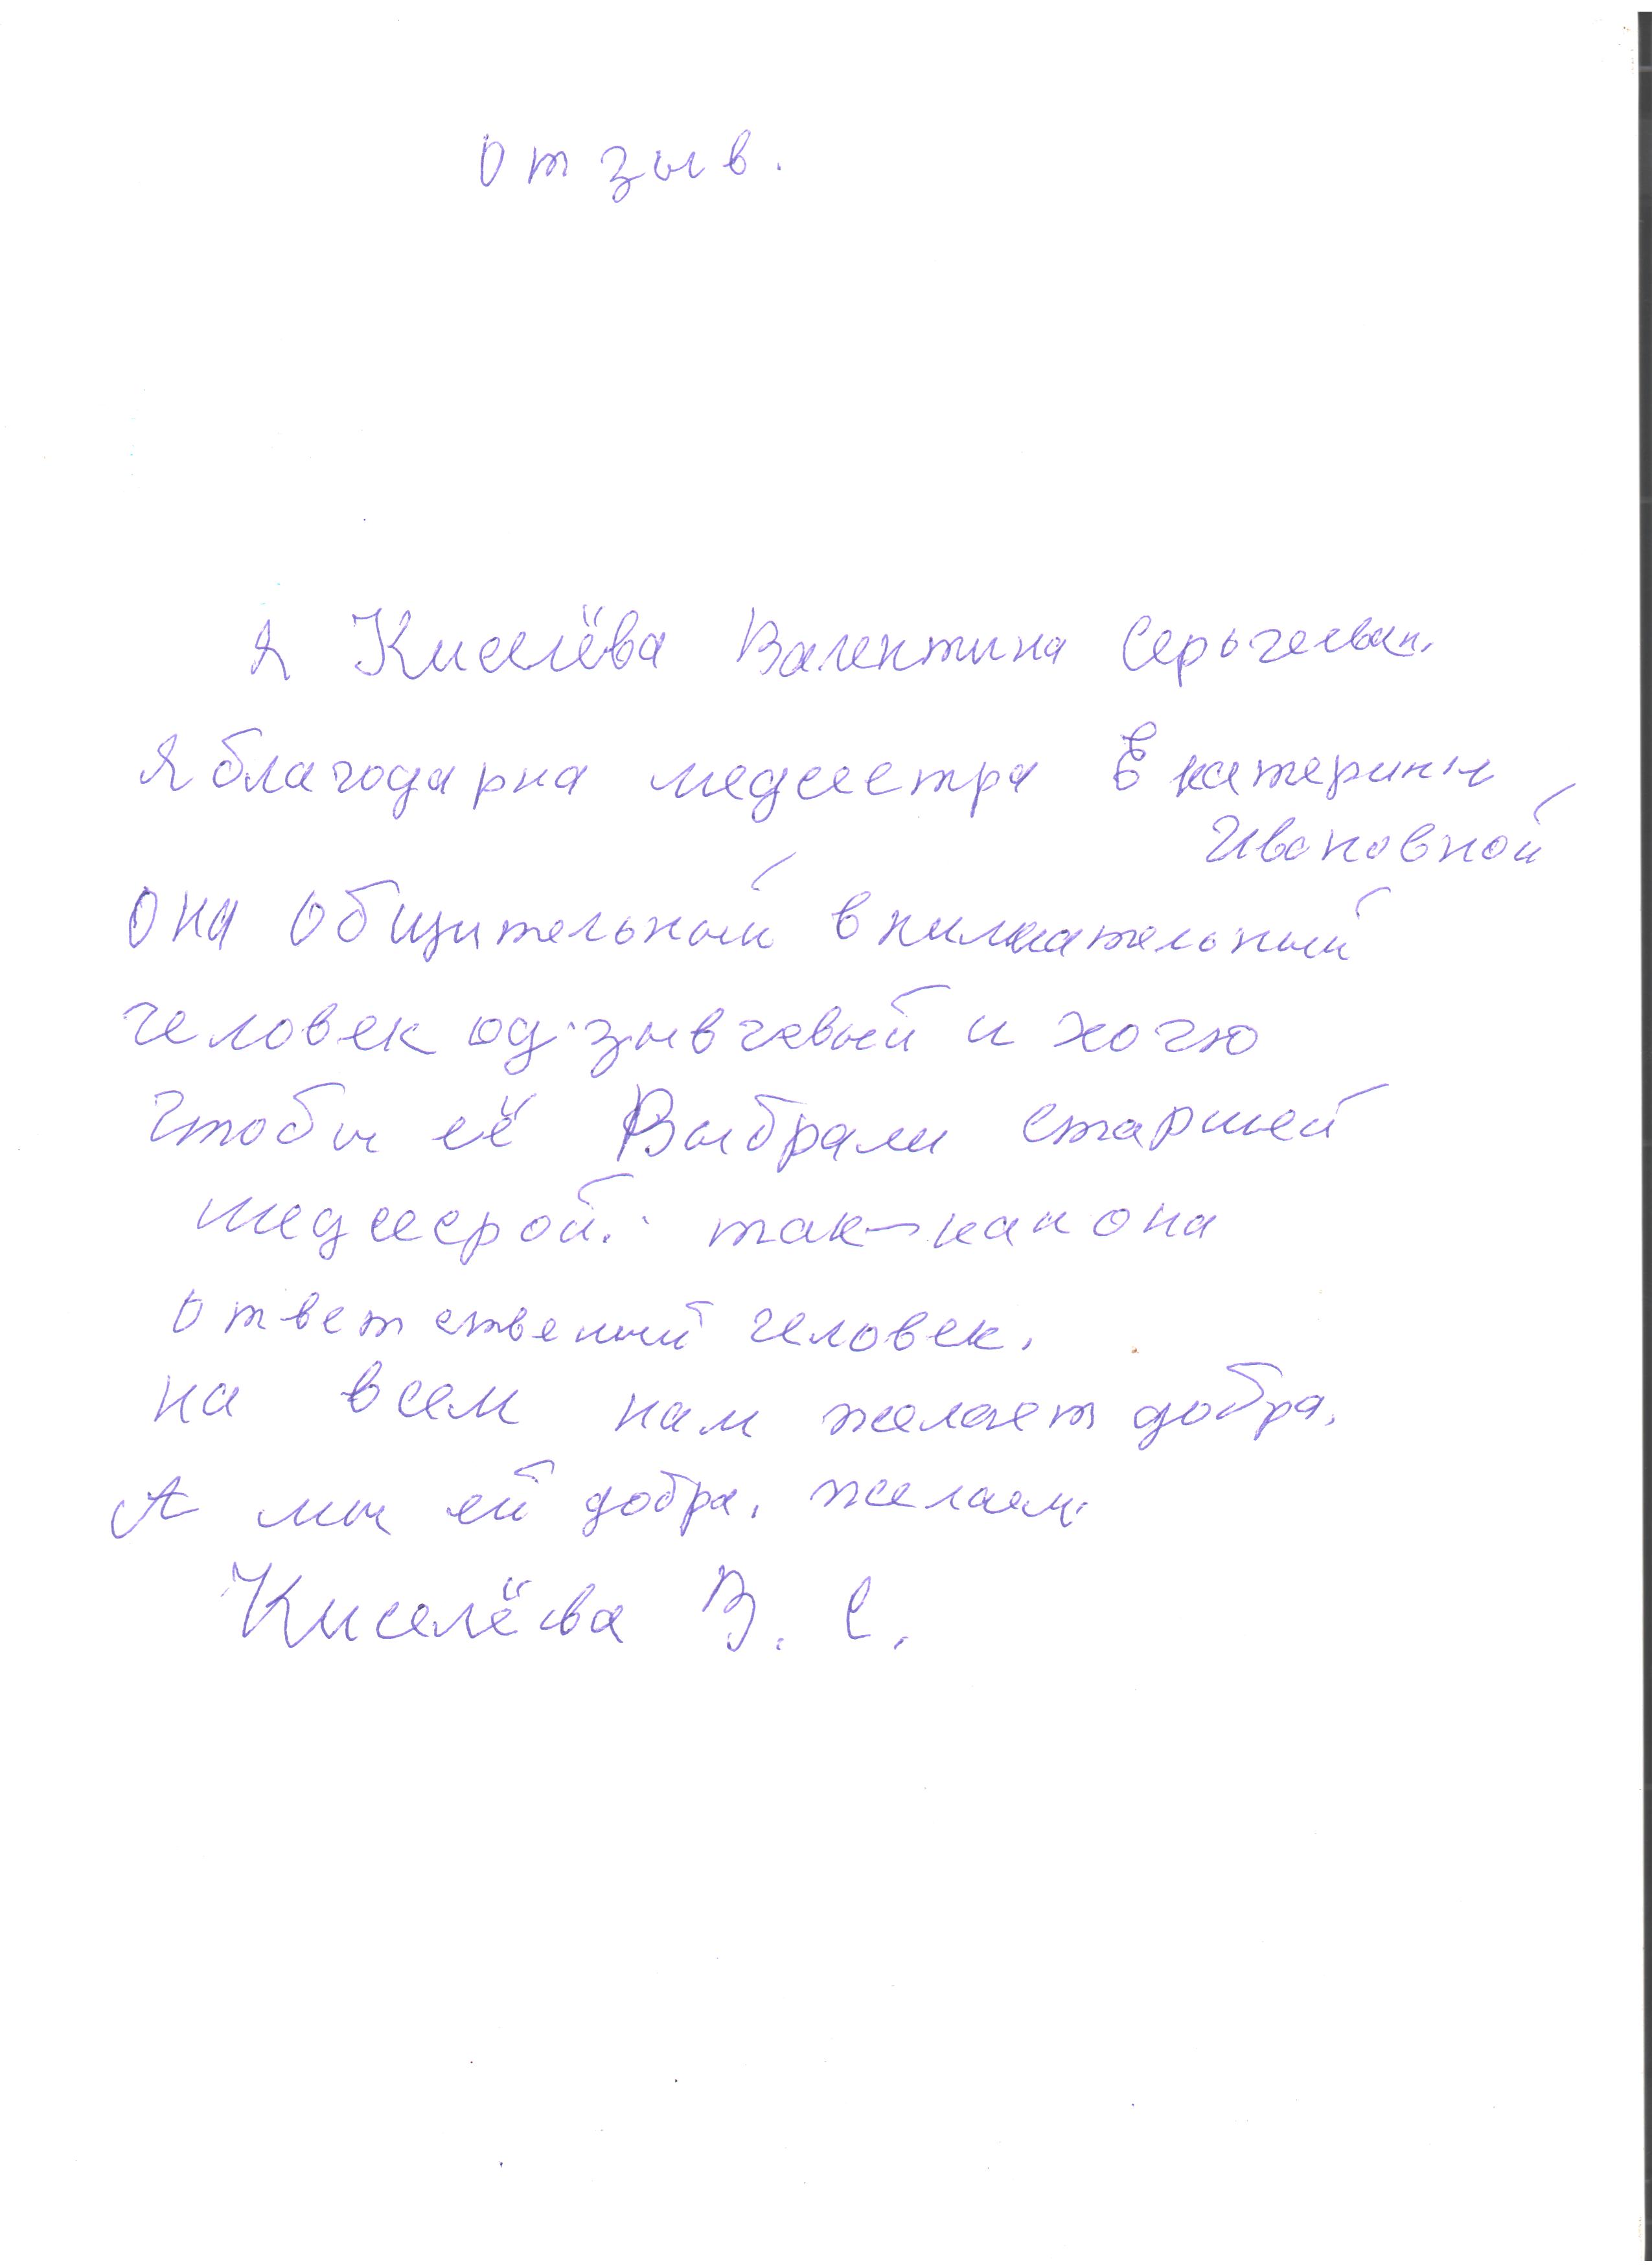 Отзыв.
Я Киселёва Валентина Серьгееван.
Я благодарна медсестра Екатерины
Ивановной
Она общительный внимательный
человек од зывчевый и хочю
чтобы её Выбрали старшей
медссрой. так-как она
ответственый человек.
на всем нам желает добра.
А мы ей добра. желаем.
Киселёва В. С.